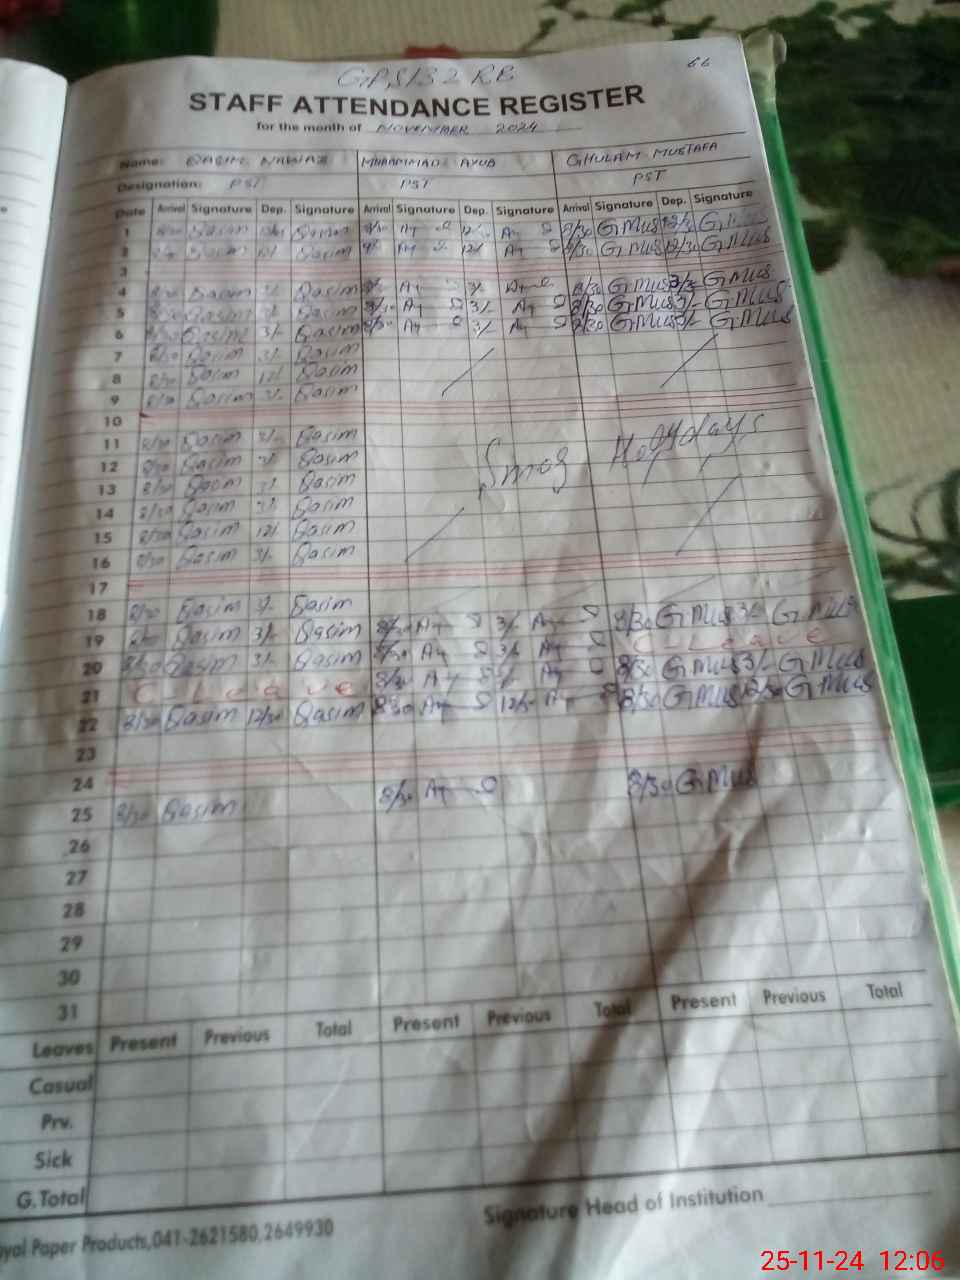 GPS 132 RB
66
STAFF ATTENDANCE REGISTER
for the month of NOVEMBER 2024
Name: QASIM NAWAZ MUHAMMAD AYUB GHULAM MUSTAFA
Designation: PST PST PST
Date Arrival Signature Dep. Signature Arrival Signature Dep. Signature Arrival Signature Dep. Signature
1 8/30 Qasim Qasim 8/30 Ay 12/- Ay 8/30 G Mus 12/30 G Mus
2 Qasim 12/- Qasim Ay 12/- Ay 8/30 G Mus 12/30 G Mus
3
4 8/30 Qasim 3/- Qasim Ay 3/- Ay 8/30 G Mus 3/- G Mus
5 8/30 Qasim 3/- Qasim 8/30 Ay 3/- Ay 8/30 G Mus 3/- G Mus
6 8/30 Qasim 3/- Qasim 8/30 Ay 3/- Ay 8/30 G Mus 3/- G Mus
7 8/30 Qasim 3/- Qasim
8 8/30 Qasim 12/- Qasim
9 8/30 Qasim 3/- Qasim
10
11 8/30 Qasim 3/- Qasim
12 8/30 Qasim 3/- Qasim Smog Holydays
13 8/30 Qasim 3/- Qasim
14 8/30 Qasim 3/- Qasim
15 8/30 Qasim 12/- Qasim
16 8/30 Qasim 3/- Qasim
17
18 8/30 Qasim 3/- Qasim
19 8/30 Qasim 3/- Qasim 8/30 Ay 3/- Ay 8/30 G Mus 3/- G Mus
20 8/30 Qasim 3/- Qasim 8/30 Ay 3/- Ay C-Leave
21 C-Leave 8/30 Ay 3/- Ay 8/30 G Mus 3/- G Mus
22 8/30 Qasim 12/30 Qasim 8/30 Ay 12/30 Ay 8/30 G Mus 12/30 G Mus
23
24
25 8/30 Qasim 8/30 Ay 8/30 G Mus
26
27
28
29
30
31
Leaves Present Previous Total Present Previous Total Present Previous Total
Casual
Prv.
Sick
G.Total
Signature Head of Institution
Paper Products,041-2621580,2649930
25-11-24 12:06